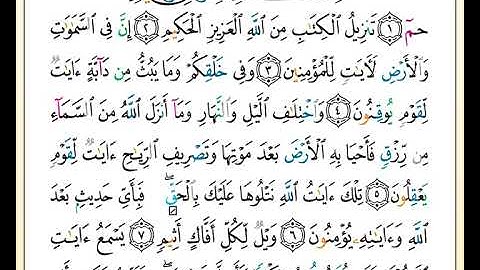 حمٓ ۝١ تَنزِيلُ ٱلْكِتَٰبِ مِنَ ٱللَّهِ ٱلْعَزِيزِ ٱلْحَكِيمِ ۝٢ إِنَّ فِى ٱلسَّمَٰوَٰتِ
وَٱلْأَرْضِ لَءَايَٰتٍ لِّلْمُؤْمِنِينَ ۝٣ وَفِى خَلْقِكُمْ وَمَا يَبُثُّ مِن دَآبَّةٍ ءَايَٰتٌ
لِّقَوْمٍ يُوقِنُونَ ۝٤ وَٱخْتِلَٰفِ ٱلَّيْلِ وَٱلنَّهَارِ وَمَآ أَنزَلَ ٱللَّهُ مِنَ ٱلسَّمَآءِ
مِن رِّزْقٍ فَأَحْيَا بِهِ ٱلْأَرْضَ بَعْدَ مَوْتِهَا وَتَصْرِيفِ ٱلرِّيَٰحِ ءَايَٰتٌ لِّقَوْمٍ
يَعْقِلُونَ ۝٥ تِلْكَ ءَايَٰتُ ٱللَّهِ نَتْلُوهَا عَلَيْكَ بِٱلْحَقِّ ۖ فَبِأَىِّ حَدِيثٍۭ بَعْدَ
ٱللَّهِ وَءَايَٰتِهِۦ يُؤْمِنُونَ ۝٦ وَيْلٌ لِّكُلِّ أَفَّاكٍ أَثِيمٍ ۝٧ يَسْمَعُ ءَايَٰتِ